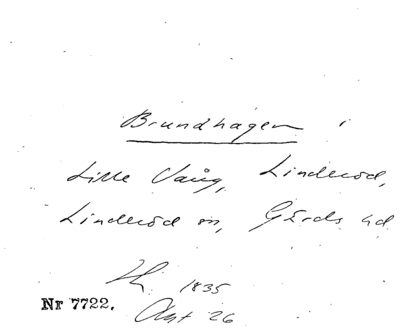 Brundhagen i
Lille Vång, Linderöd,
Linderöd sn, Gärds hd
1835
Nr 7722. Akt 26